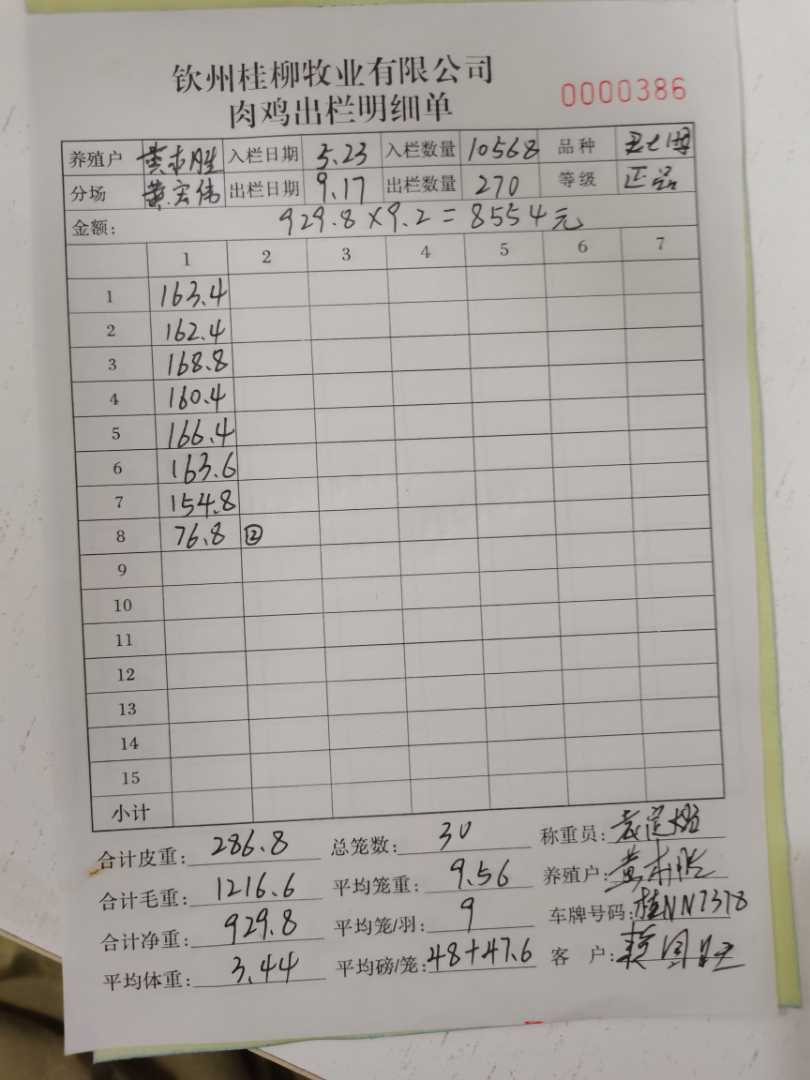 钦州桂柳牧业有限公司
肉鸡出栏明细单 0000386
养殖户 黄木胜 入栏日期 5.23 入栏数量 10568 品种
分场 黄宏伟 出栏日期 9.17 出栏数量 270 等级 正品
金额: 929.8×9.2=8554元
1 2 3 4 5 6 7
1 163.4
2 162.4
3 168.8
4 160.4
5 166.4
6 163.6
7 154.8
8 76.8 ②
9
10
11
12
13
14
15
小计
合计皮重: 286.8 总笼数: 30 称重员:
合计毛重: 1216.6 平均笼重: 9.56 养殖户: 黄木胜
合计净重: 929.8 平均笼/羽: 9 车牌号码: 桂NN7378
平均体重: 3.44 平均磅/笼: 48+47.6 客 户: